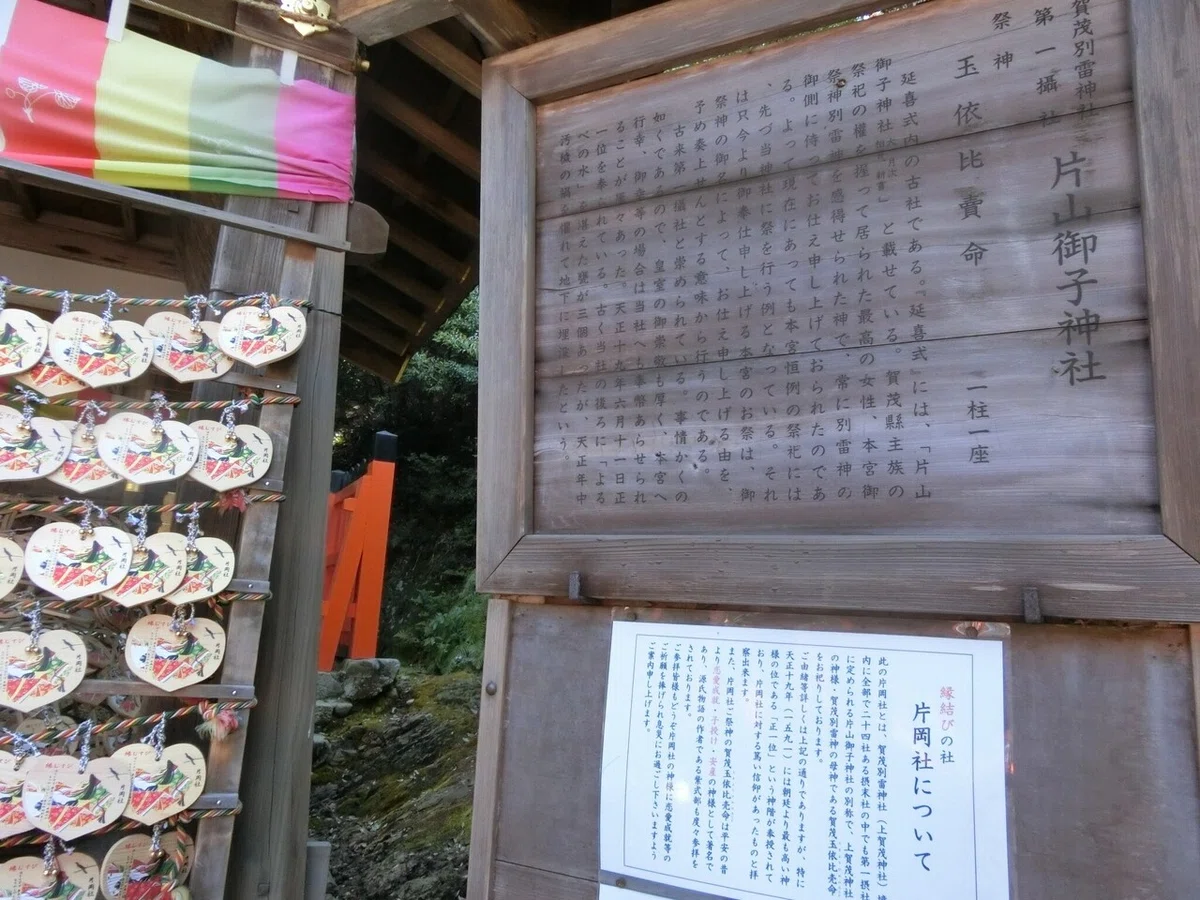 賀茂別雷神社
第一攝社
片山御子神社
祭神
玉依比賣命 一柱一座
延喜式内の古社である。『延喜式』には、「片山
御子神社 」と載せている。賀茂縣主族の
祭祀の權を握って居られた最高の女性、本宮御
祭神別雷神を感得せられた神で、常に別雷神の
御側に侍ってお仕え申し上げておられたのであ
る。よって現在にあっても本宮恒例の祭祀には
、先づ当神社に祭を行う例となっている。それ
は只今より御奉仕申し上げる本宮のお祭は、御
祭神の御名によって、お仕え申し上げる由を、
予め奏上せんとする意味から行うのである。
古来第一攝社と崇められている。事情かくの
如くであるので、皇室の御崇敬も厚く、本宮へ
行幸、御幸等の場合は当社へも奉幣あらせられ
ることが屡々あった。天正十九年六月十一日正
一位を奉られている。古く当社の後ろに「よる
べの水」を湛えた甕が三個あったが、天正年中
汚穢の禍を懼れて地下に埋淪したという。
縁結びの社
片岡社について
此の片岡社とは、賀茂別雷神社（上賀茂神社）境
内に全部で二十四社ある摂末社の中でも第一摂社
に定められる片山御子神社の別称で、上賀茂神社
の神様・賀茂別雷神の母神である賀茂玉依比売命
をお祀りしております。
ご由緒等詳しくは上記の通りでありますが、特に
天正十九年（一五九一）には朝廷より最も高い神
様の位である「正一位」という神階が奉授されて
おり、片岡社に対する篤い信仰があったものと拝
察出来ます。
また、片岡社ご祭神の賀茂玉依比売命は平安の昔
より恋愛成就・子授け・安産の神様として著名で
あり、源氏物語の作者である紫式部も度々参拝を
されております。
ご参拝皆様もどうぞ片岡社の神様に恋愛成就等の
ご祈願を捧げられ息災にお過ごし下さいますよう
ご案内申し上げます。
片岡社